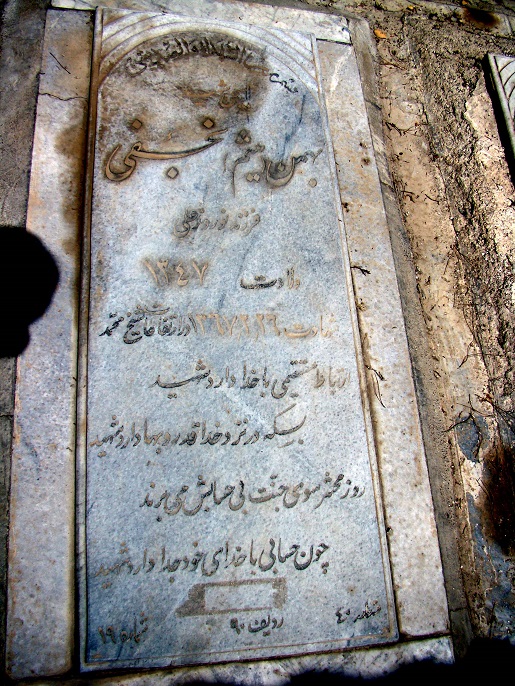 بهمن (میثم) نجفی
فرزند نوروزعلی
ولادت ۱۳۴۷
شهادت ۱۳۶۷/۲/۲۶ در ارتفاعات شیخ محمد
ارتباط مستقیمی با خدا دارد شهید
بسکه در نزد خدا قدر و بها دارد شهید
روز محشر سوی جنت بی حسابش می برند
چون حسابی با خدای خود جدا دارد شهید
قطعه ۴۰ ردیف ۹۰ شماره ۱۹